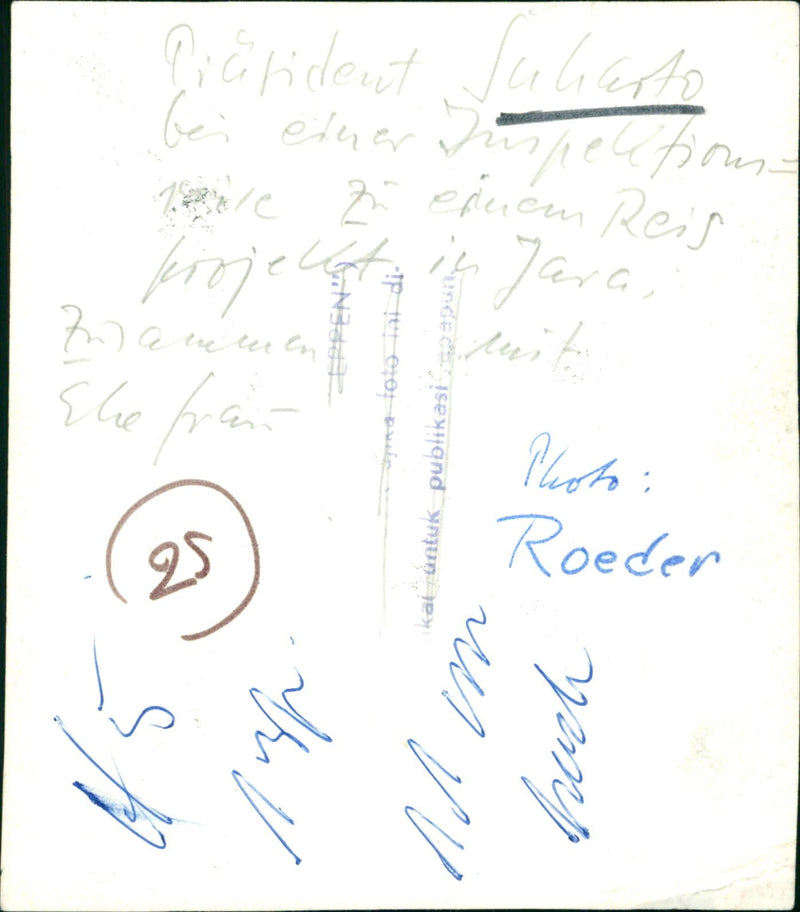 Präsident Suharto
bei einer Inspektions=
reise zu einem Reis
projekt in Java,
zusammen mit
Ehefrau
EPPEN")
jika foto ini di-
kai untuk publikasi apapun.
Photo:
Roeder
25